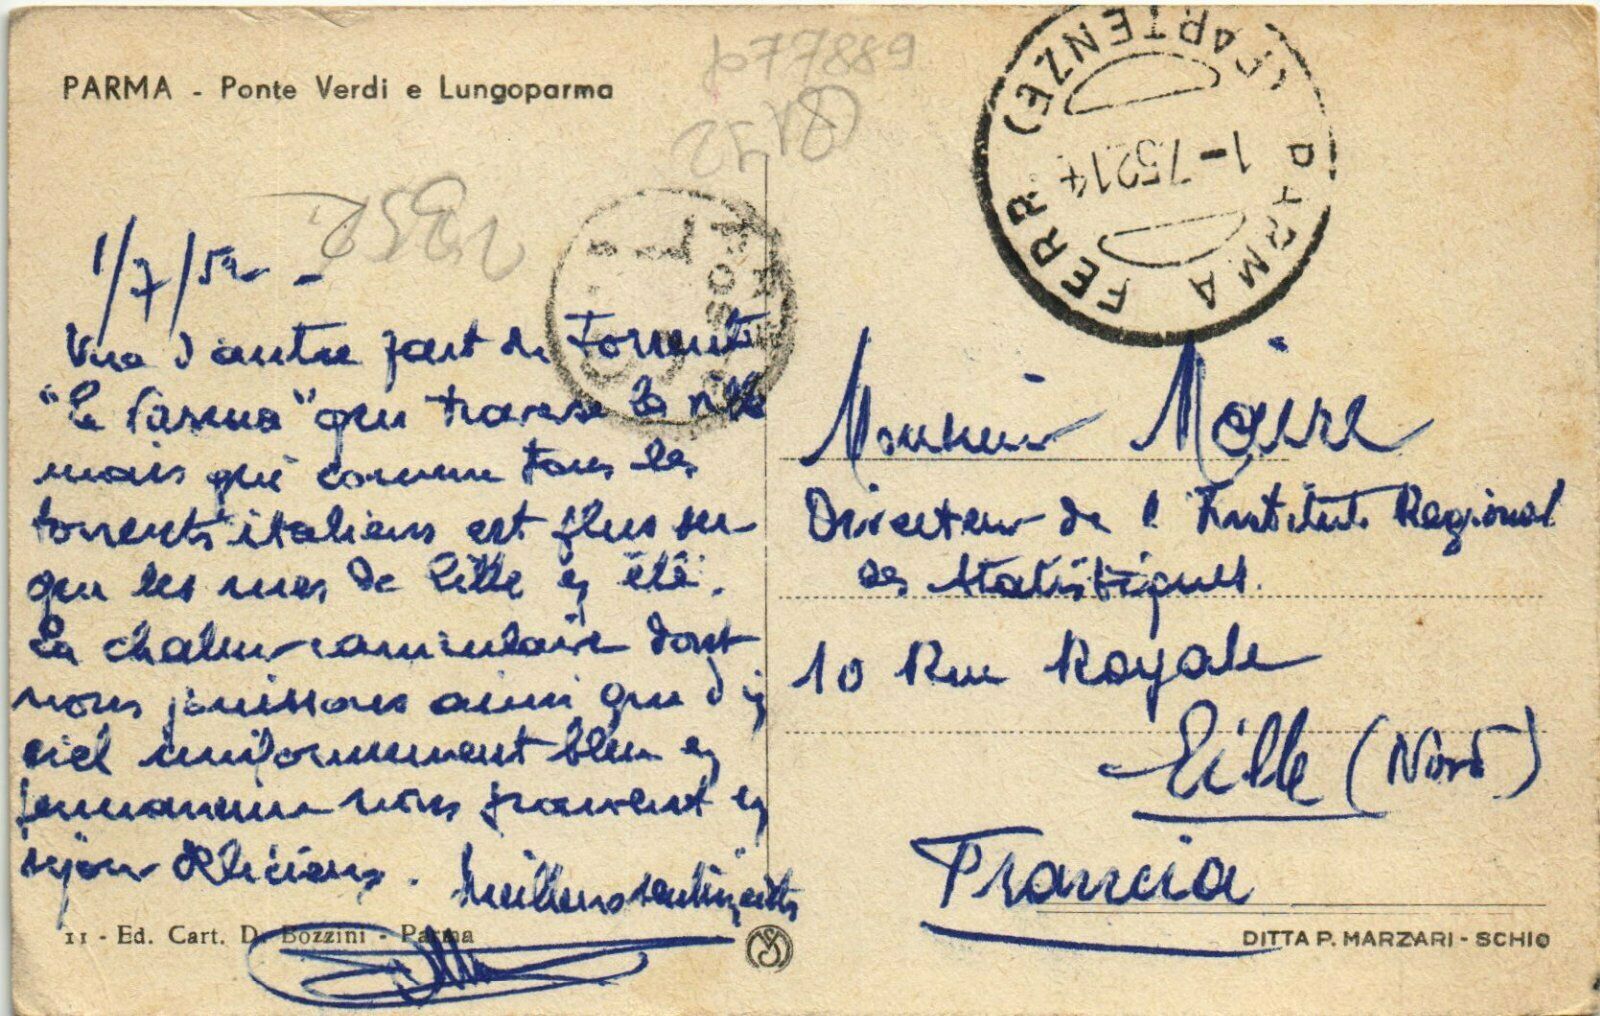 PARMA - Ponte Verdi e Lungoparma
p77889
PARMA FERR. (PARTENZE)
1-7 52 14
1/7/52 -
Vue d'autre part du Torrent
"la Parma" qui traverse la ville
mais qui comme tous les
torrents italiens est plus sec
que les rues de Lille en été.
La chaleur caniculaire dont
nous jouissons ainsi que d'un
ciel uniformément bleu en
permanence nous procurent un
séjour délicieux. Meilleurs sentiments
Monsieur Maire
Directeur de l'Institut Regional
des Statistiques.
10 Rue Royale
Lille (Nord)
Francia
11 - Ed. Cart. D. Bozzini - Parma
DITTA P. MARZARI - SCHIO